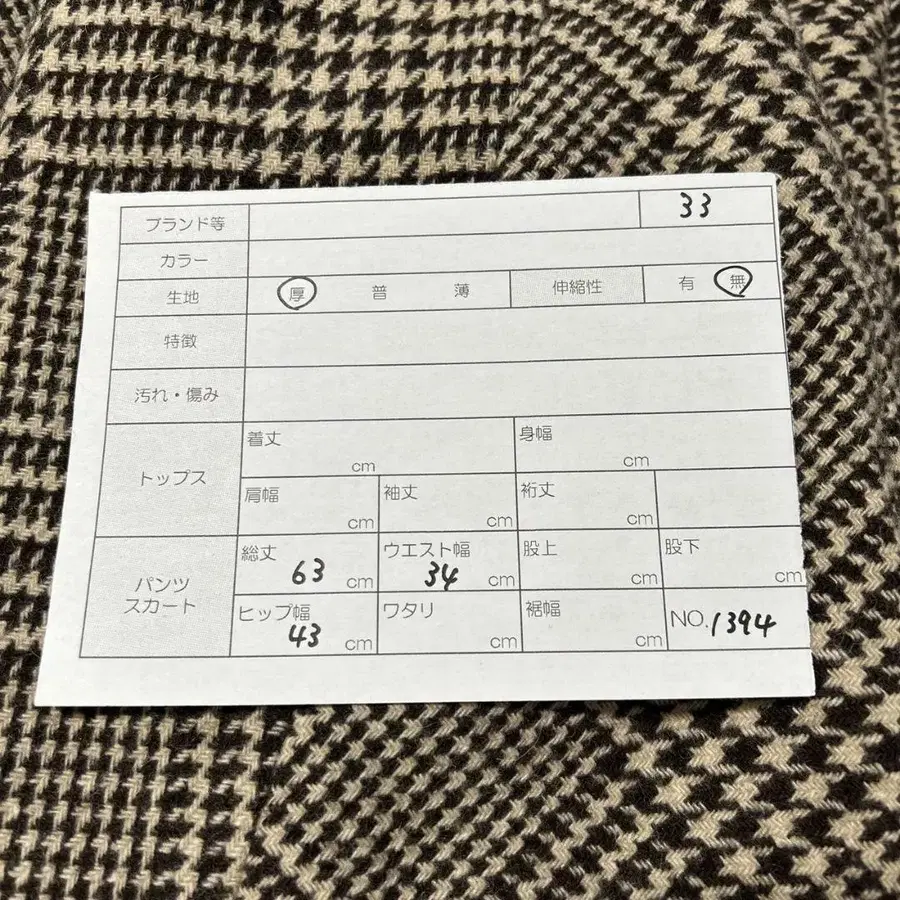 ブランド等 33
カラー
生地 厚 普 薄 伸縮性 有 無
特徴
汚れ・傷み
トップス
着丈 cm 身幅 cm
肩幅 cm 袖丈 cm 裄丈 cm
パンツ
スカート
総丈 63 cm ウエスト幅 34 cm 股上 cm 股下 cm
ヒップ幅 43 cm ワタリ cm 裾幅 cm NO.1394